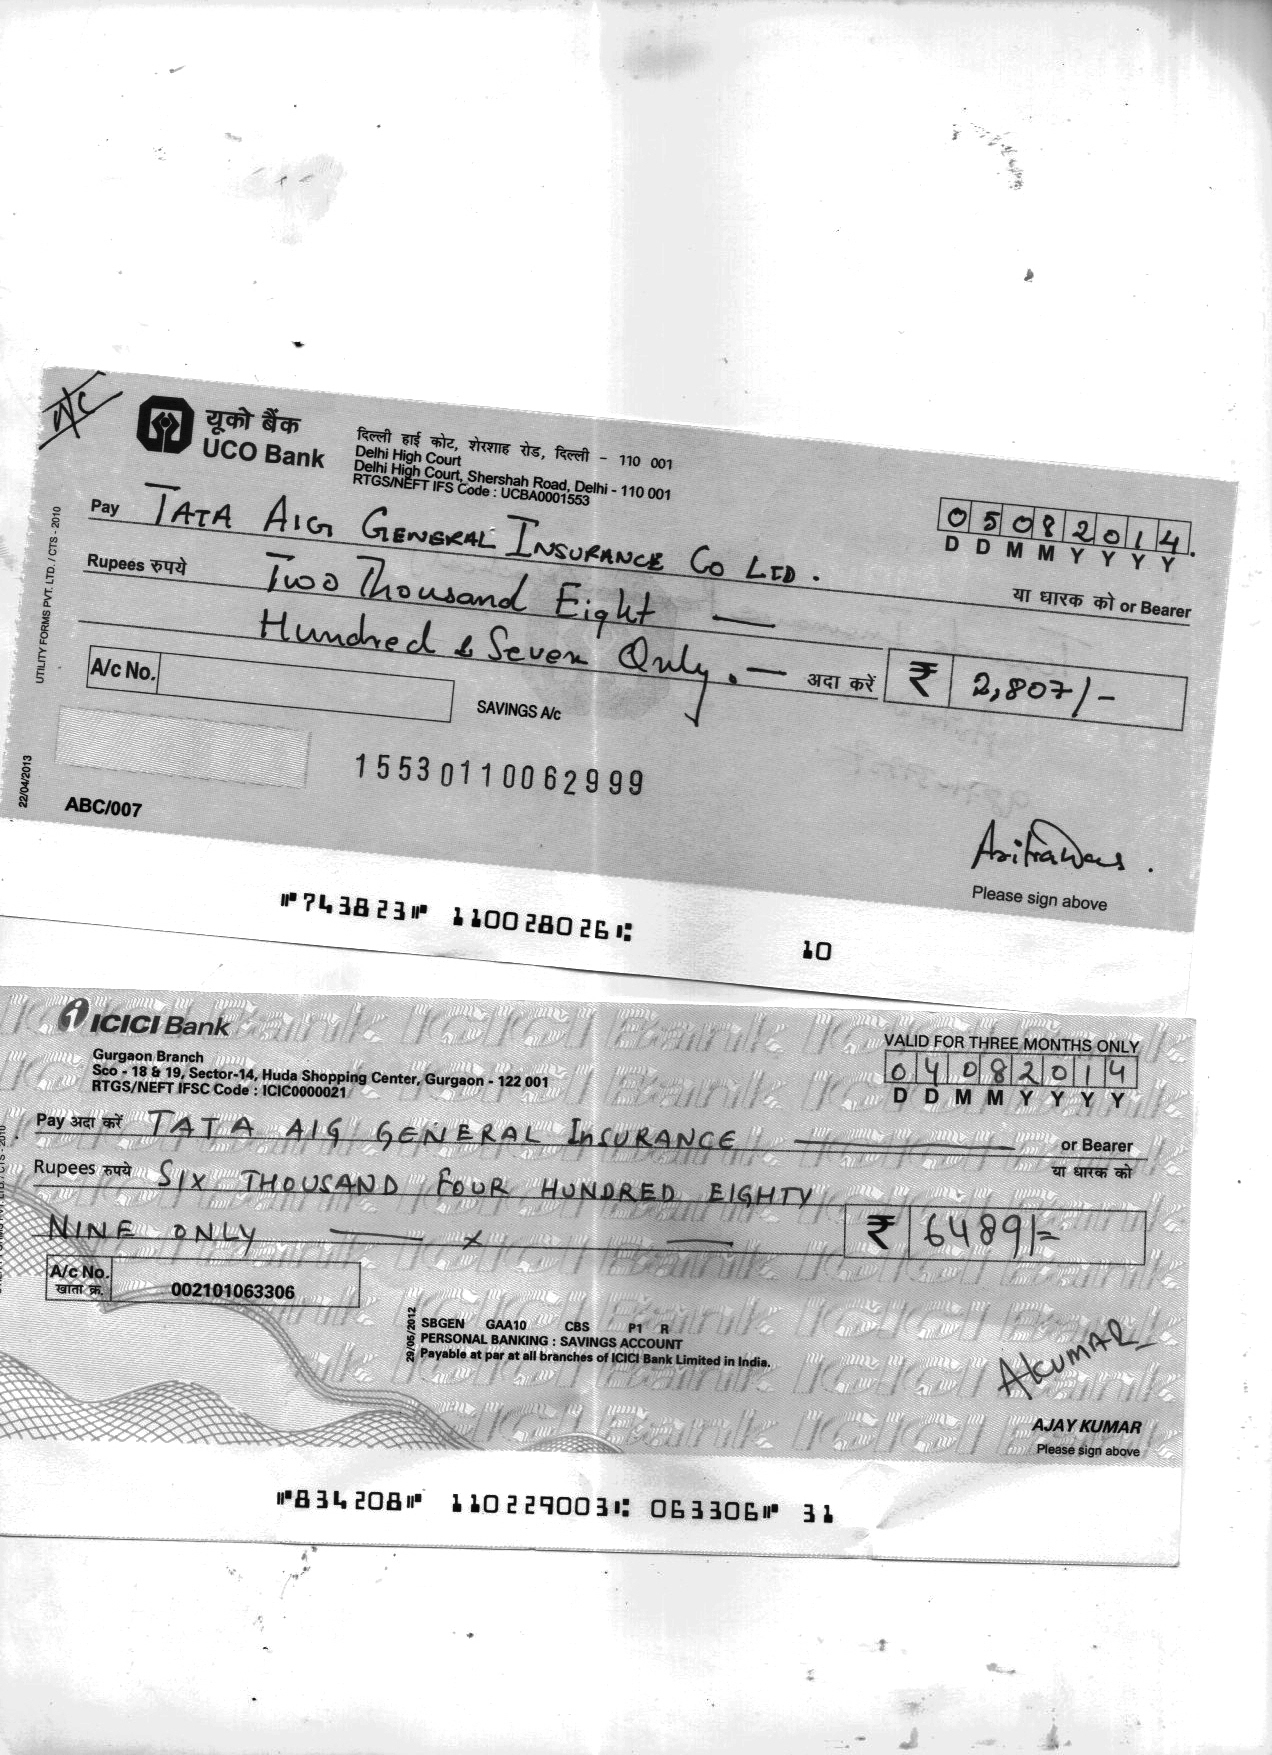 A/C
यूको बैंक
UCO Bank
दिल्ली हाई कोट, शेरशाह रोड, दिल्ली - 110 001
Delhi High Court
Delhi High Court, Shershah Road, Delhi - 110 001
RTGS/NEFT IFS Code : UCBA0001553
05082014
D D M M Y Y Y Y
Pay TATA AIG GENERAL INSURANCE CO LTD.
या धारक को or Bearer
Rupees रुपये Two Thousand Eight
Hundred & Seven Only. अदा करें ₹ 2,807/-
A/c No.
SAVINGS A/c
15530110062999
UTILITY FORMS PVT. LTD. / CTS - 2010
22/04/2013
ABC/007
Please sign above
⑈743823⑈ 110028026⑆ 10
ICICI Bank
Gurgaon Branch
Sco - 18 & 19, Sector-14, Huda Shopping Center, Gurgaon - 122 001
RTGS/NEFT IFSC Code : ICIC0000021
VALID FOR THREE MONTHS ONLY
04082014
D D M M Y Y Y Y
Pay अदा करें TATA AIG GENERAL INSURANCE or Bearer
या धारक को
Rupees रुपये SIX THOUSAND FOUR HUNDRED EIGHTY
NINE ONLY — x — ₹ 6489/=
A/c No.
खाता क्र.
002101063306
29/06/2012
SBGEN GAA10 CBS P1 R
PERSONAL BANKING : SAVINGS ACCOUNT
Payable at par at all branches of ICICI Bank Limited in India.
AKUMAR
AJAY KUMAR
Please sign above
⑈834208⑈ 110229003⑆ 063306⑈ 31